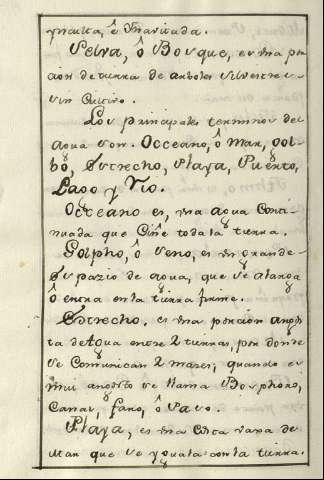 inculta, ô Havitada.
Selva, ô Bosque, es una por
cion de tierra de arboles silvestres
sin Cultivo.
Los principales terminos del
agua son. Occeano, ô Mar, Gol-
fo, Estrecho, Playa, Puerto,
Lago y Rio.
Occeano es, una agua Conti-
nuada que Ciñe toda la tierra.
Golpho, ô Seno, es un grande
Espazio de agua, que se alarga
ô entra en la tierra firme.
Estrecho. es una porcion angos
ta de Agua entre 2 tierras, por donde
se Comunican 2 mares, quando es
mui angosto se llama Bosphoro,
Canal, faro, ô Paso.
Playa, es una Costa rasa de
Mar que se yguala con la tierra.